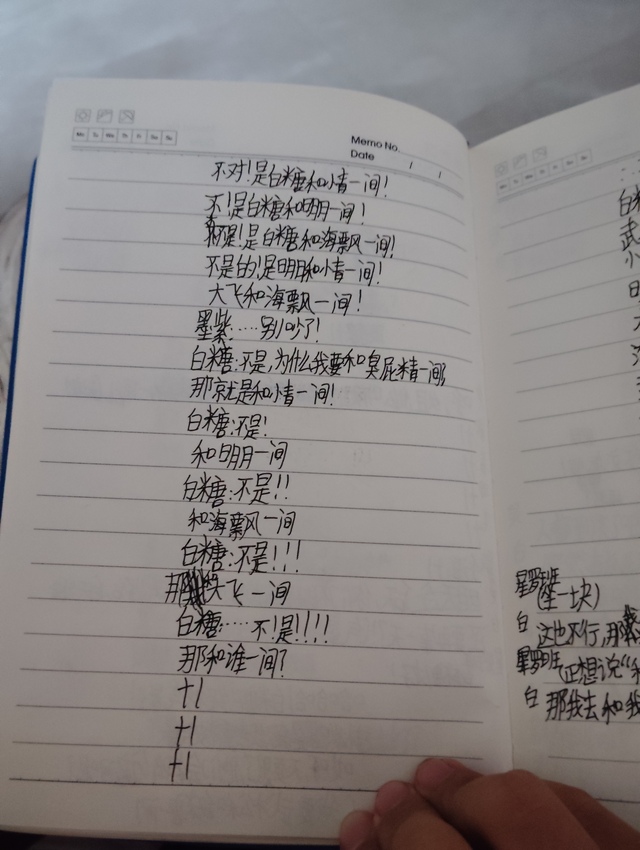 Mo Tu We Th Fr Sa Su
Memo No.
Date / /
不对!是白糖和小青一间!
不!是白糖和明明一间!
不是!是白糖和海飘一间!
不是的!是明明和小青一间!
大飞和海飘一间!
墨紫:……别吵了!
白糖:不是,为什么我要和臭屁精一间
那就是和小青一间!
白糖:不是!
和明明一间
白糖:不是!!
和海飘一间
白糖:不是!!!
那大飞一间
白糖:……不!是!!!!
那和谁一间?
+1
+1
+1
白
武
小
星罗班
(坐一块)
白 这也不行,那
星罗班(正想说“和
白 那我去和我